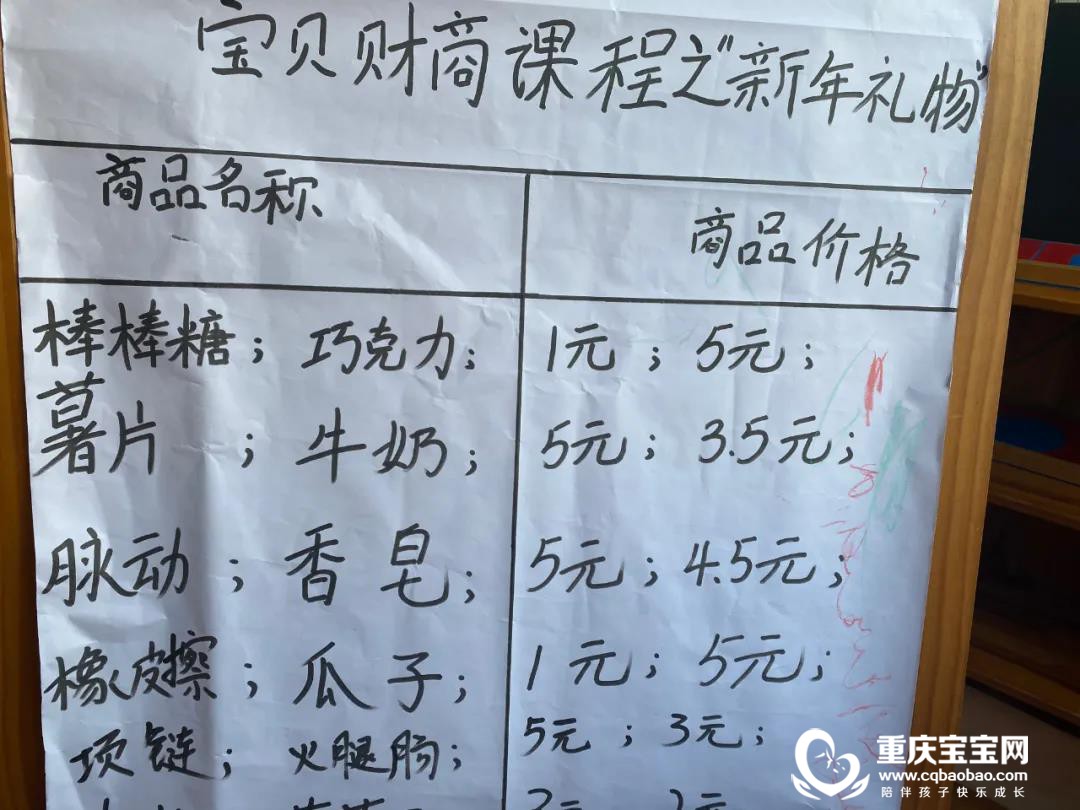 宝贝财商课程之"新年礼物"
商品名称 商品价格
棒棒糖；巧克力； 1元；5元；
薯片；牛奶； 5元；3.5元；
脉动；香皂； 5元；4.5元；
橡皮擦；瓜子； 1元；5元；
项链；火腿肠； 5元；3元；
重庆宝宝网
www.cqbaobao.com
陪伴孩子快乐成长